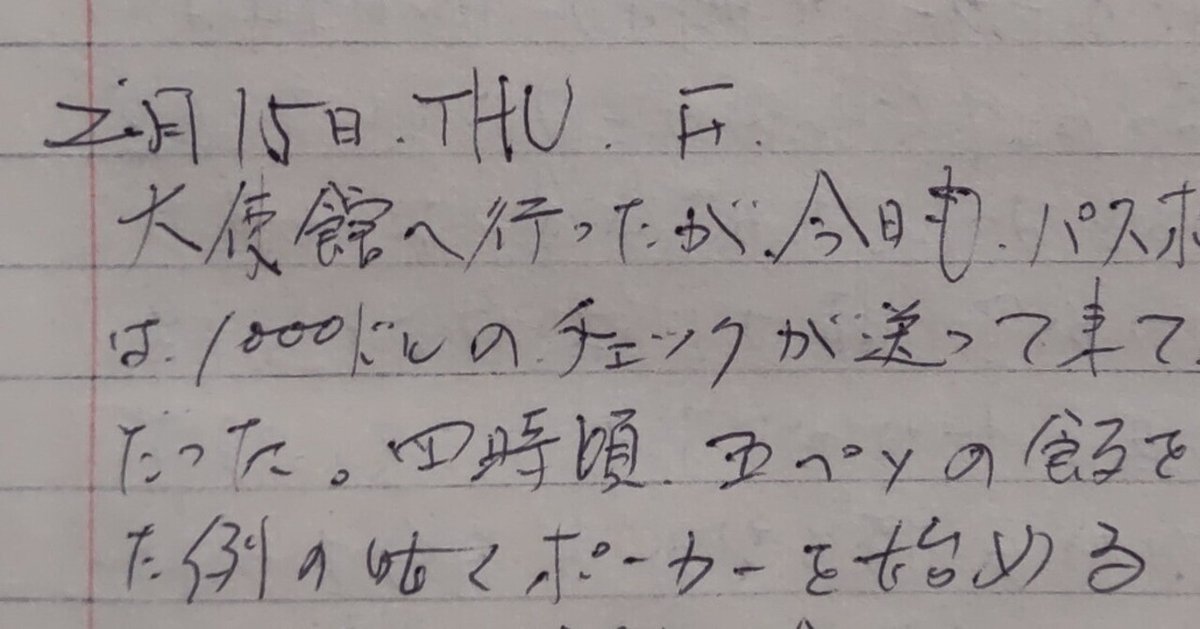 2月15日. THU. F.
大使館へ行ったが、今日も、パスポ
は、1000ドルのチェックが送って来て
だった。四時頃、五ペソの飯を
た例の如くポーカーを始める